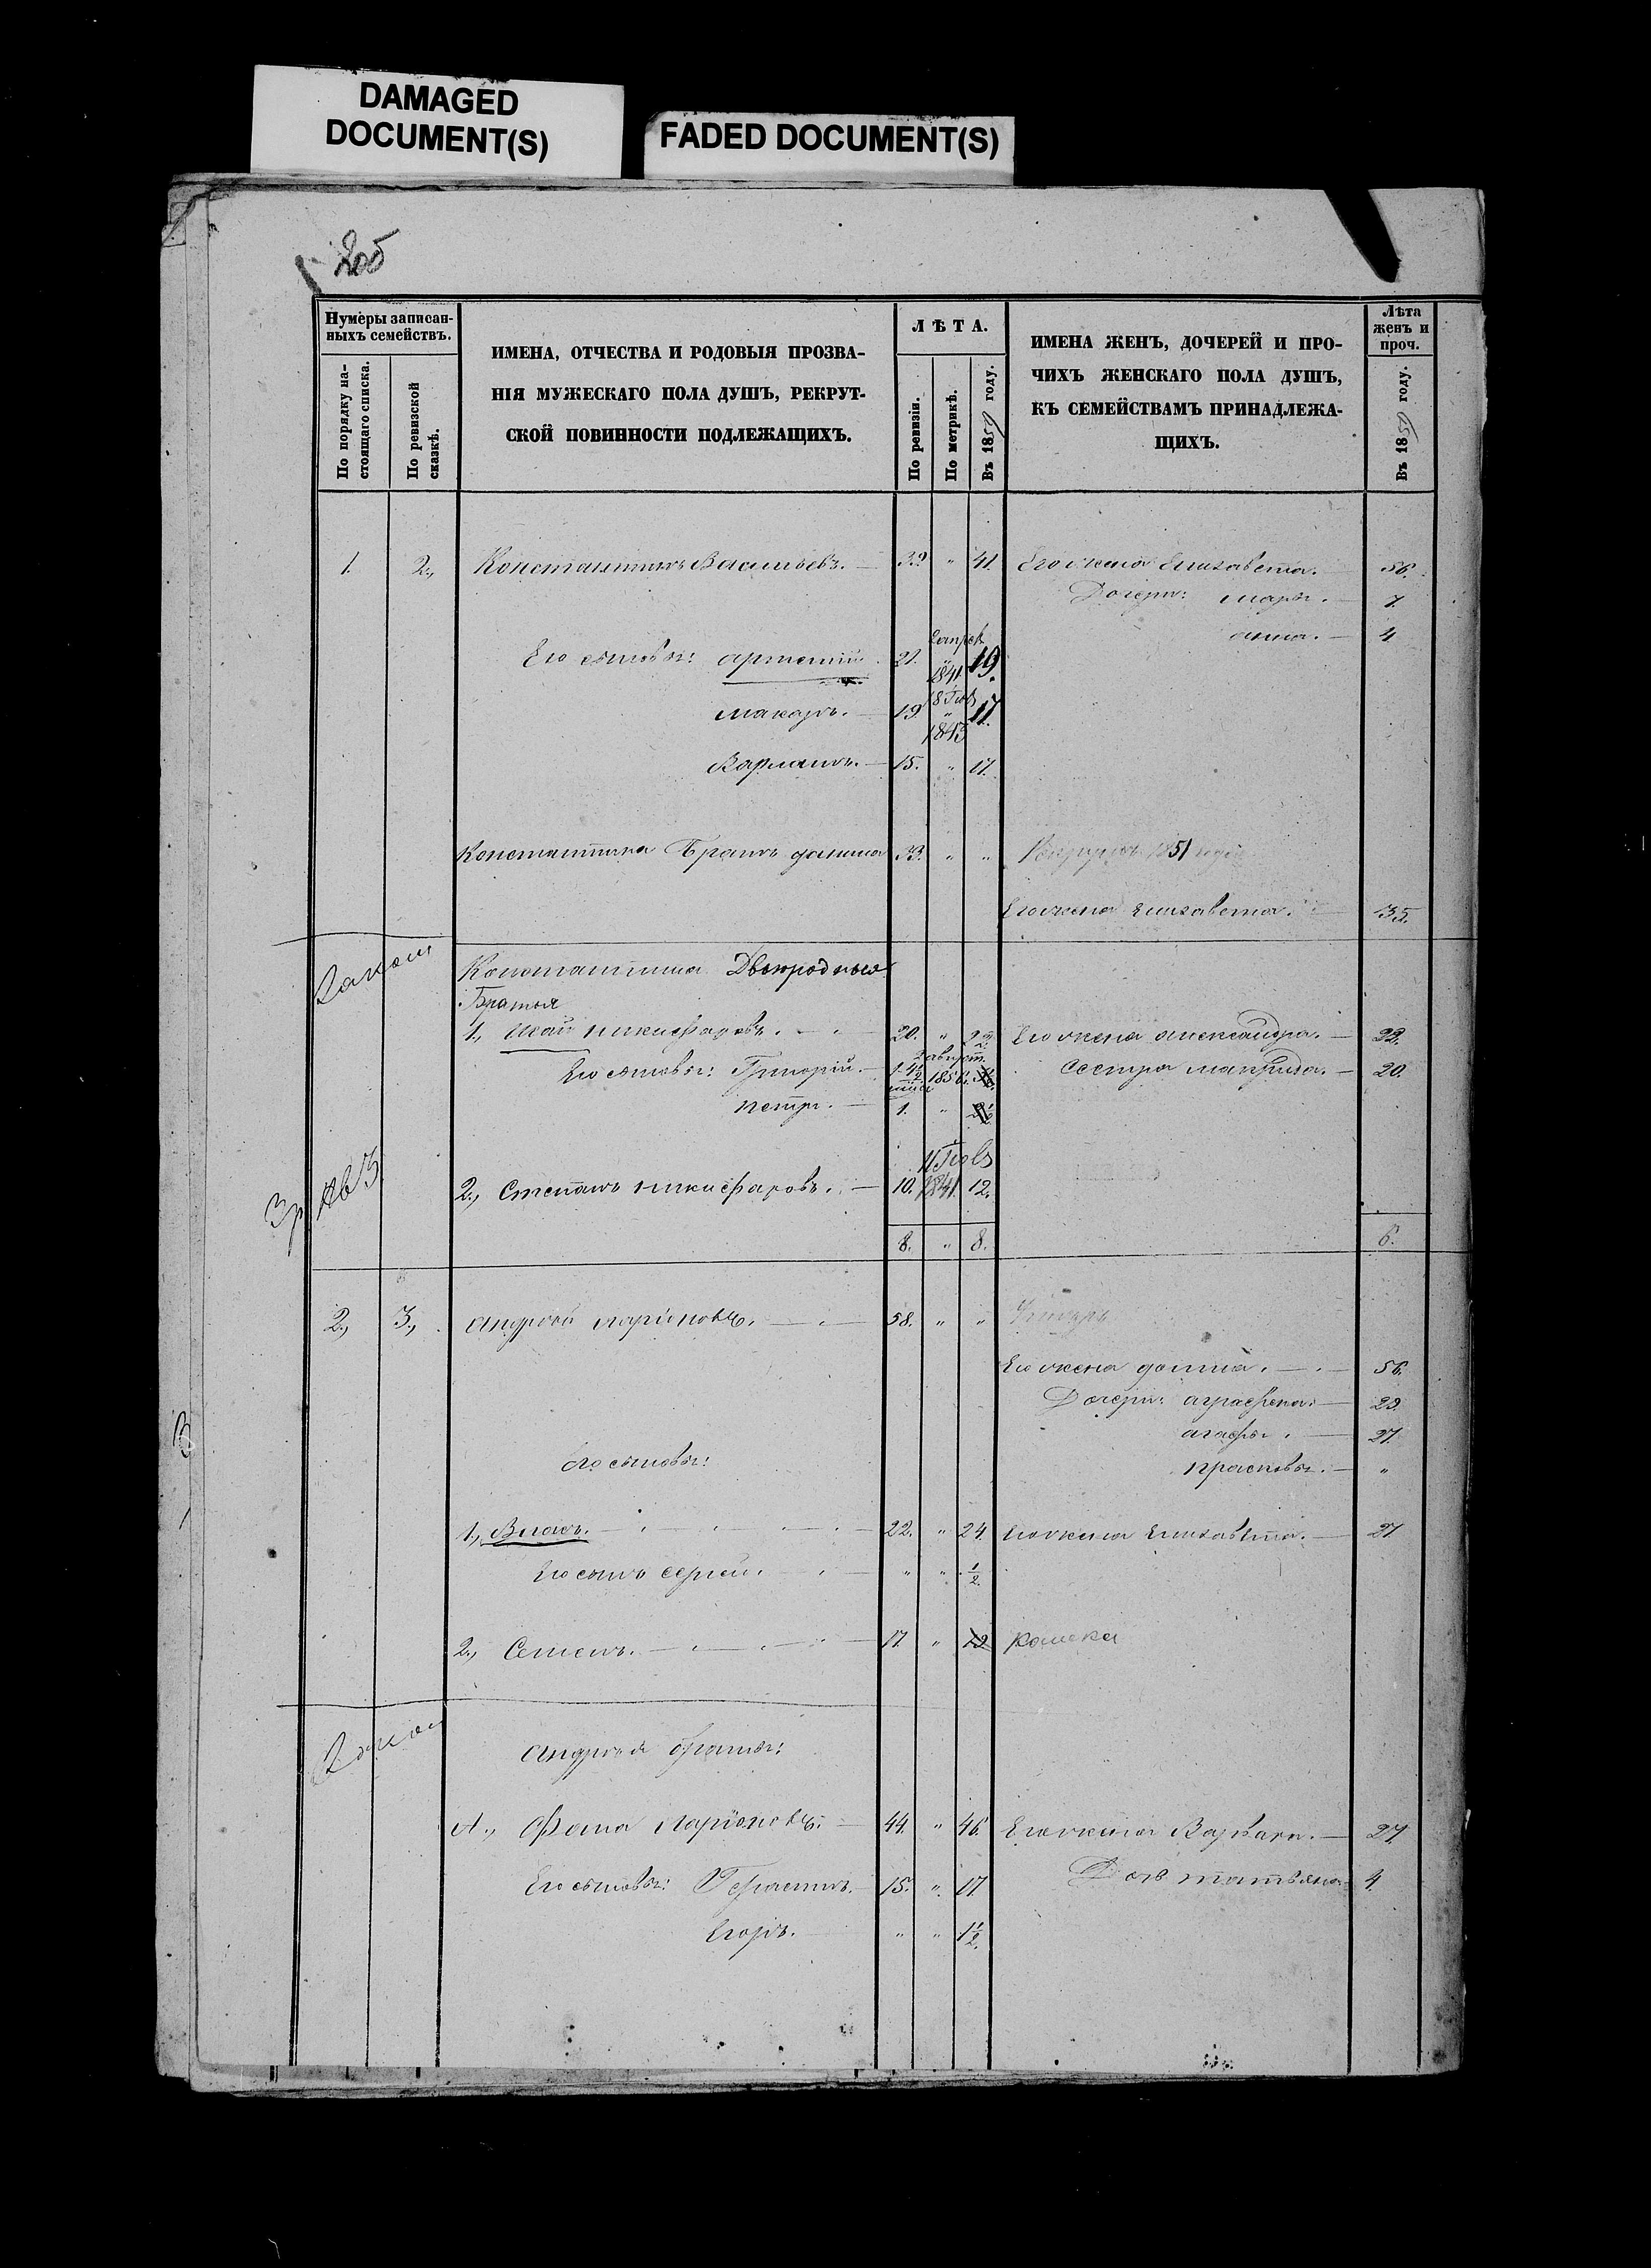 DAMAGED
DOCUMENT(S)
FADED DOCUMENT(S)
205
Нумеры записан-
ныхъ семействъ.
По порядку на-
стоящаго списка.
По ревизской
сказкѣ.
ИМЕНА, ОТЧЕСТВА И РОДОВЫЯ ПРОЗВА-
НІЯ МУЖЕСКАГО ПОЛА ДУШЪ, РЕКРУТ-
СКОЙ ПОВИННОСТИ ПОДЛЕЖАЩИХЪ.
ЛѢТА.
По ревизіи.
По метрикѣ.
Въ 1859 году.
ИМЕНА ЖЕНЪ, ДОЧЕРЕЙ И ПРО-
ЧИХЪ ЖЕНСКАГО ПОЛА ДУШЪ,
КЪ СЕМЕЙСТВАМЪ ПРИНАДЛЕЖА-
ЩИХЪ.
Лѣта
женъ и
проч.
Въ 1859 году.
1. 2., Константинъ Васильевъ. 39 " 41. Его жена Елизавета. 56.
Дочери: марья. 7.
анна. 4
Его сыновья: артемій 21. 1841. 19.
макаръ. 19 18 1843 17.
Варламъ. 15. " 17.
Константина Братъ данила 33. " " 1851
Его жена Елизавета. 35.
Константина Двоюродныя
Братья
1., никифоровъ. 20. " 22. Его жена александра. 22.
Его сыновья: Григорій. 1856. Сестра 20.
петръ. 1. "
2., Степанъ никифоровъ. 10. 11 1841. 12.
8. " 8. 6.
2., 3., андрей ларіоновъ. 58. " "
Его жена 56.
Дочери: аграфена. 29.
агафья. 27.
Его сыновья: прасковья. "
1., Власъ. 22. " 24 Его жена Елизавета. 27
Его сынъ сергей. " " 1/2.
2., Семенъ. 17 " 19
андрея братья:
А., Фома ларіоновъ. 44. " 46. Его жена Варвара. 27
Его сыновья: Герасимъ. 15. " 17 Дочь татьяна 4.
Егоръ. " " 1 1/2.